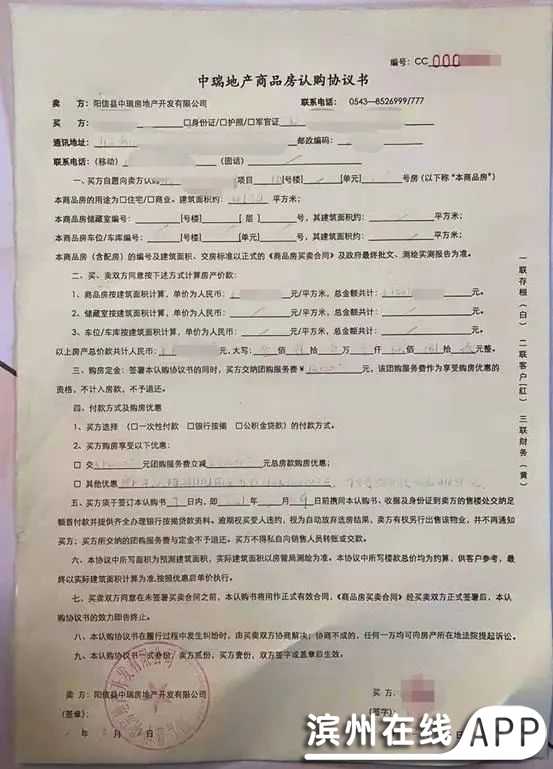 编号：CC 000
中瑞地产商品房认购协议书
卖 方：阳信县中瑞房地产开发有限公司 联系电话： 0543—8526999/777
买 方： 口身份证/口护照/口军官证
通讯地址： 邮政编码：
联系电话：（移动） （固话）
一、买方自愿向卖方认购 项目 [号楼] [单元] 号房（以下称“本商品房”）
本商品房的用途为口住宅/口商业。建筑面积约： 平方米；
本商品房储藏室编号： [号楼] [层] 号，其建筑面积约： 平方米；
本商品房车位/车库编号： [号楼] [单元] 号，其建筑面积约： 平方米；
本商品房（含配房）的编号及建筑面积、交房标准以正式的《商品房买卖合同》及政府最终批文、测绘实测报告为准。
二、买、卖双方同意按下述方式计算房产价款：
1、商品房按建筑面积计算，单价为人民币： 元/平方米，总金额共计： 元。
2、储藏室按建筑面积计算，单价为人民币： 元/平方米，总金额共计： 元。
3、车位/车库按建筑面积计算，单价为人民币： 元/平方米，总金额共计： 元。
以上房产总价款共计人民币： 元，大写： 佰 拾 万 仟 佰 拾 元整。
三、购房定金：签署本认购协议书的同时，买方交纳团购服务费¥ 元，该团购服务费作为享受购房优惠的
资格，不计入房款，不予退还。
四、付款方式及购房优惠
1、买方选择 （口一次性付款 口银行按揭 口公积金贷款）的付款方式。
2、买方购房享受以下优惠：
口 交 元团购服务费立减 元总房款购房优惠；
口 其他优惠
五、买方须于签订本认购书 7 日内，即 年 月 9 日前携同本认购书、收据及身份证到卖方的售楼处交纳足
额首付款并提供齐全办理银行按揭贷款资料。逾期视买受人违约，视为自动放弃选房结果，卖方有权另行出售该物业，并不再通知
买方；买方所交纳的团购服务费与定金不予退还。买方不得私自向销售人员转账或交款。
六、本协议中所写面积为预测建筑面积，实际建筑面积以房管局测绘为准。本协议中所写楼款总价均为约算，供客户参考，最
终以实际建筑面积计算为准，按照优惠后单价执行。
七、买卖双方同意在未签署买卖合同之前，本认购书将用作正式有效合同，《商品房买卖合同》经买卖双方正式签署后，本认
购协议书的效力即告终止。
八、本认购协议书在履行过程中发生纠纷时，由买卖双方协商解决；协商不成的，任何一方均可向房产所在地法院提起诉讼。
九、本认购协议书一式叁份，卖方贰份，买方壹份，双方签字或盖章后生效。
一联存根（白） 二联客户（红） 三联财务（黄）
卖 方：阳信县中瑞房地产开发有限公司 买 方：
（签章）： （签字）：
年 月 日
滨州在线APP